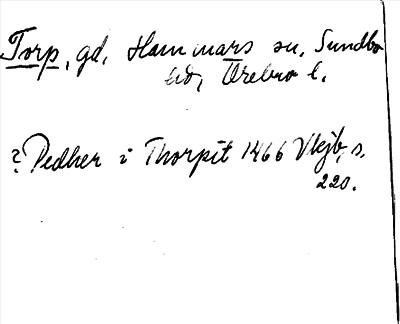 Torp, gd, Hammars sn, Sundbo
hd, Örebro l.
? Pedher i Thorpit 1466 Vtejb, s.
220.